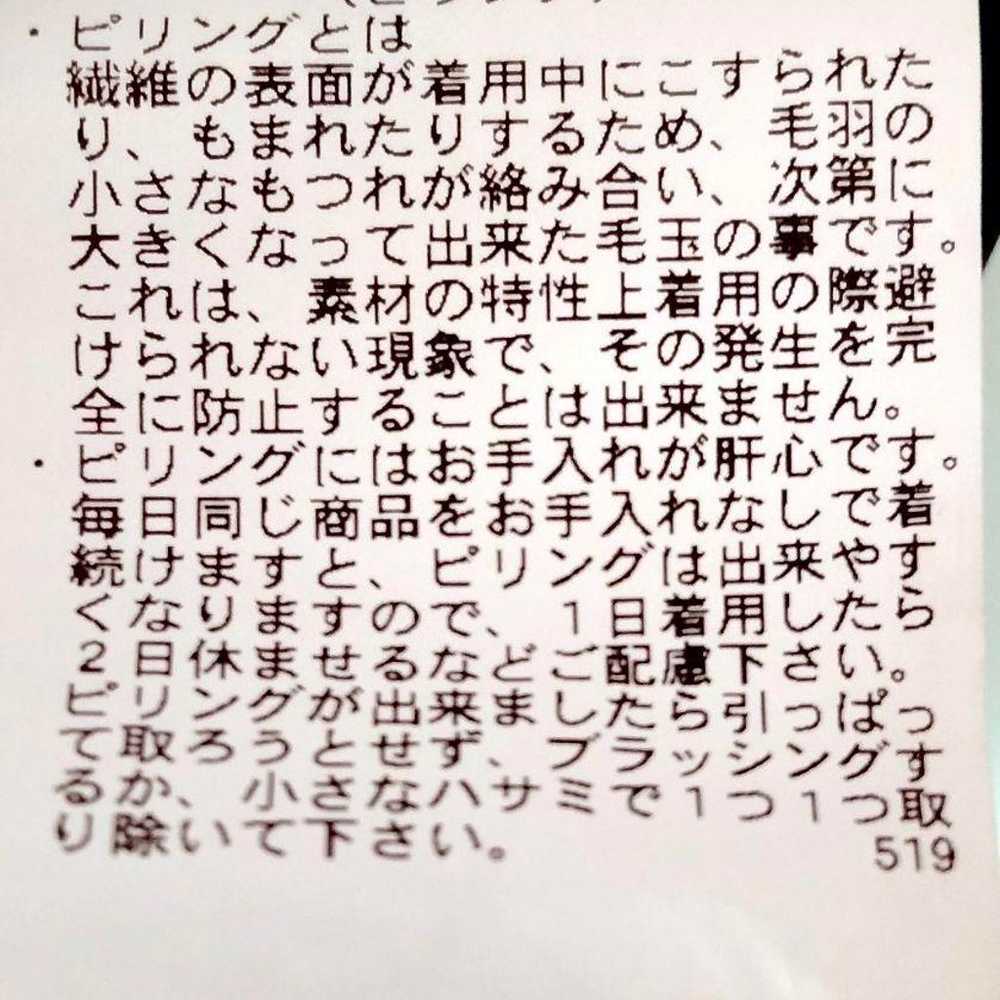 ・ピリングとは
繊維の表面が着用中にこすられた
り、もまれたりするため、毛羽の
小さなもつれが絡み合い、次第に
大きくなって出来た毛玉の事です。
これは、素材の特性上着用の際避
けられない現象で、その発生を完
全に防止することは出来ません。
・ピリングにはお手入れが肝心です。
毎日同じ商品をお手入れなしで着
続けますと、ピリングは出来やす
くなりますので、1日着用したら
2日休ませるなどご配慮下さい。
ピリングが出来ましたら引っぱっ
て取ろうとせず、ブラッシングす
るか、小さなハサミで1つ1つ取
り除いて下さい。
519